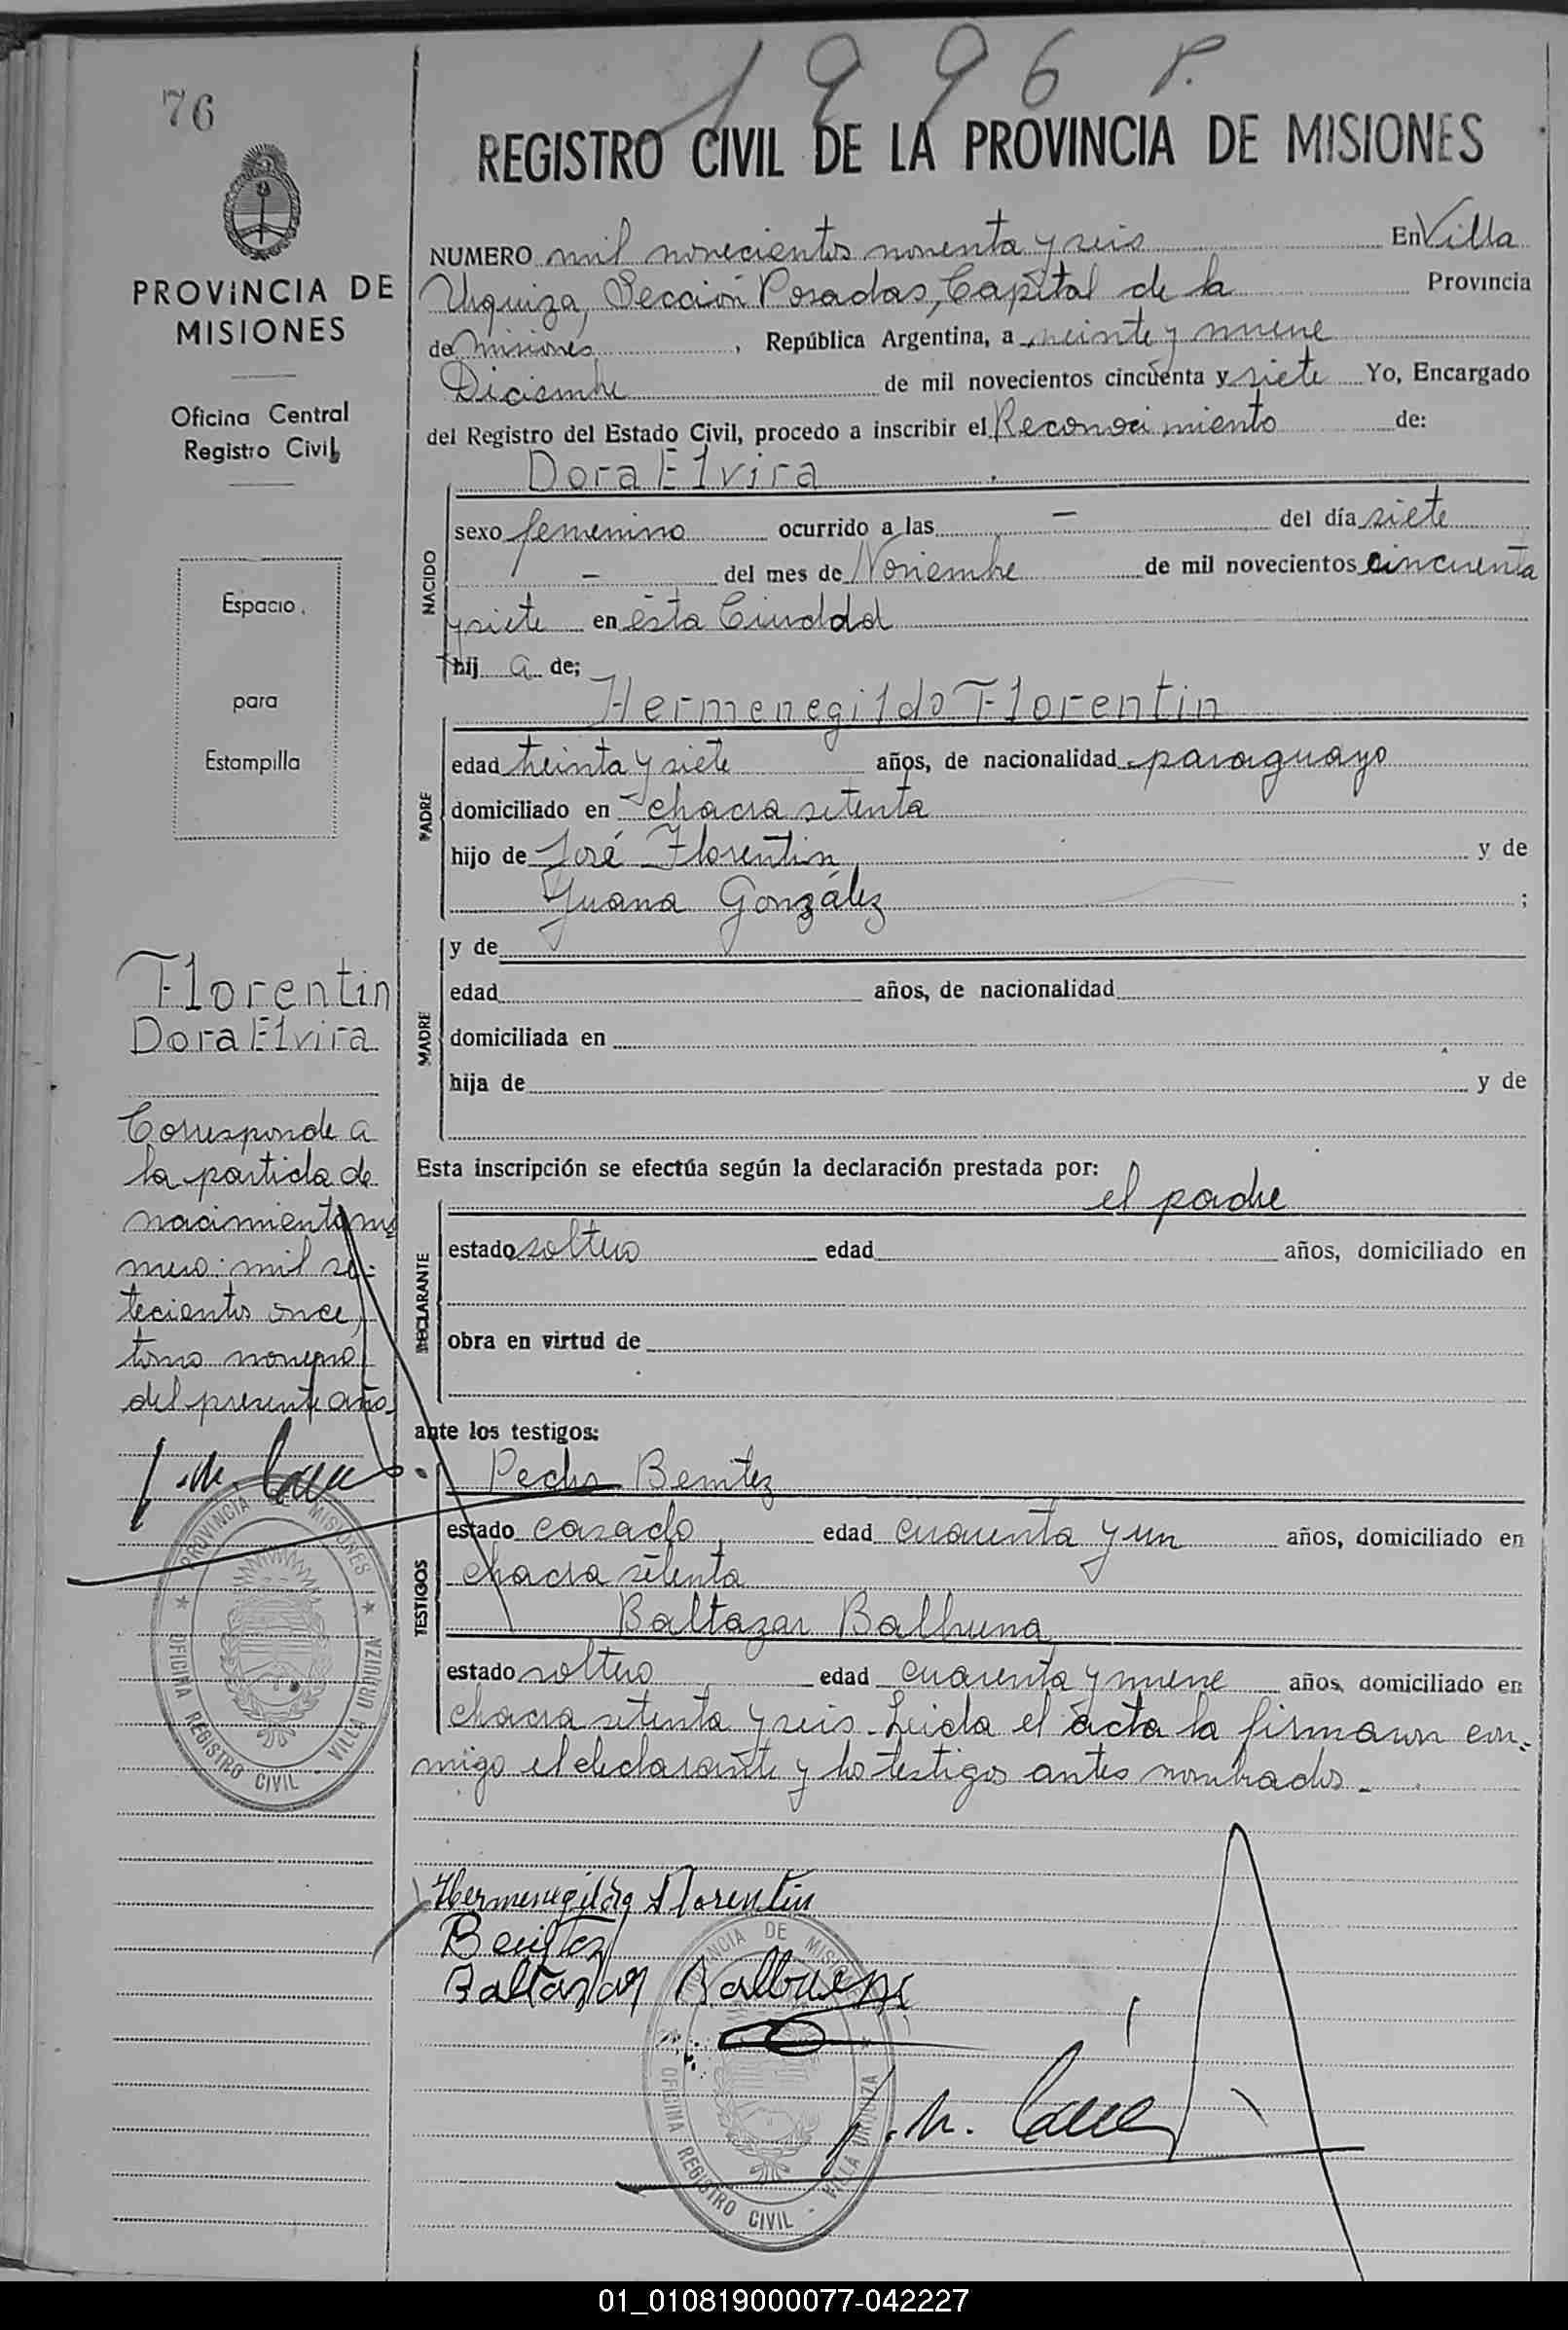 1996 P.
76
REGISTRO CIVIL DE LA PROVINCIA DE MISIONES
PROVINCIA DE
MISIONES
Oficina Central
Registro Civil
Espacio
para
Estampilla
Florentin
Dora Elvira
Corresponde a
la partida de
nacimiento nú
mero: mil se-
tecientos once,
tomo noveno
del presente año.
PROVINCIA DE MISIONES
OFICINA REGISTRO CIVIL - VILLA URQUIZA
NUMERO mil novecientos noventa y seis En Villa
Urquiza, Sección Posadas, Capital de la Provincia
de Misiones, República Argentina, a veinte y nueve
Diciembre de mil novecientos cincuenta y siete Yo, Encargado
del Registro del Estado Civil, procedo a inscribir el Reconocimiento de:
Dora Elvira
NACIDO
sexo femenino ocurrido a las — del día siete
— del mes de Noviembre de mil novecientos cincuenta
y siete en ésta Ciudad
hij a de;
Hermenegildo Florentin
PADRE
edad treinta y siete años, de nacionalidad paraguayo
domiciliado en chacra setenta
hijo de José Florentin y de
Juana González ;
MADRE
y de
edad años, de nacionalidad
domiciliada en
hija de y de
Esta inscripción se efectúa según la declaración prestada por:
el padre
DECLARANTE
estado soltero edad años, domiciliado en
obra en virtud de
ante los testigos:
TESTIGOS
Pedro Benitez
estado casado edad cuarenta y un años, domiciliado en
chacra setenta
Baltazar Balbuena
estado soltero edad cuarenta y nueve años, domiciliado en
chacra setenta y seis. Leída el acta la firmaron con-
migo el declarante y los testigos antes nombrados.
Hermenegildo Florentin
Benitez
Baltazar Balbuena
PROVINCIA DE MISIONES
OFICINA REGISTRO CIVIL - VILLA URQUIZA
01_010819000077-042227